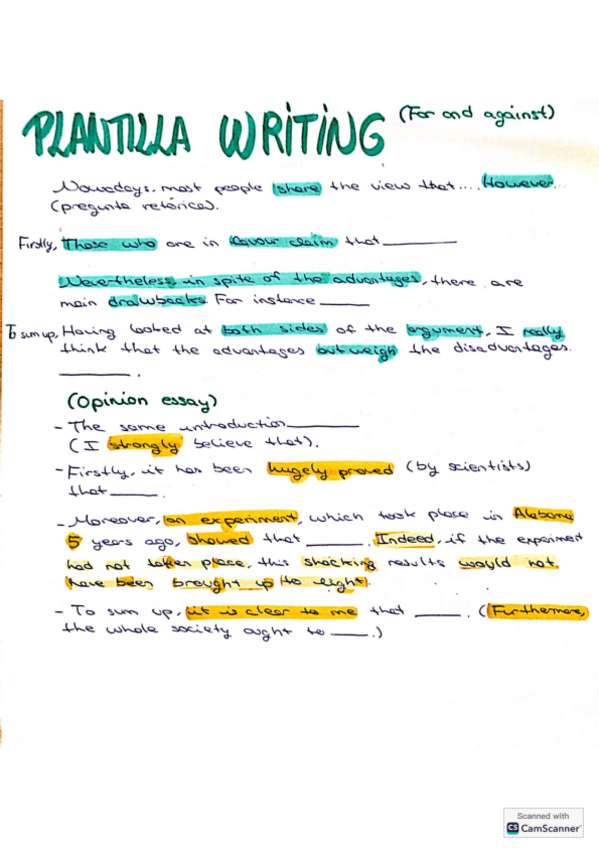 PLANTILLA WRITING (For and against)
Nowadays, most people share the view that.... However...
(pregunta retórica).
Firstly, Those who are in favour claim that ______
Nevertheless, in spite of the advantages, there are
main drawbacks. For instance ______
To sum up, Having looked at both sides of the argument, I really
think that the advantages outweigh the disadvantages.
______.
(Opinion essay)
- The same introduction ______
(I strongly believe that).
- Firstly, it has been hugely proved (by scientists)
that ______.
- Moreover, an experiment, which took place in Alabama
5 years ago, showed that ______. Indeed, if the experiment
had not taken place, this shocking results would not
have been brought up to light.
- To sum up, it is clear to me that ______. (Furthermore,
the whole society ought to ______.)
Scanned with
CS CamScanner